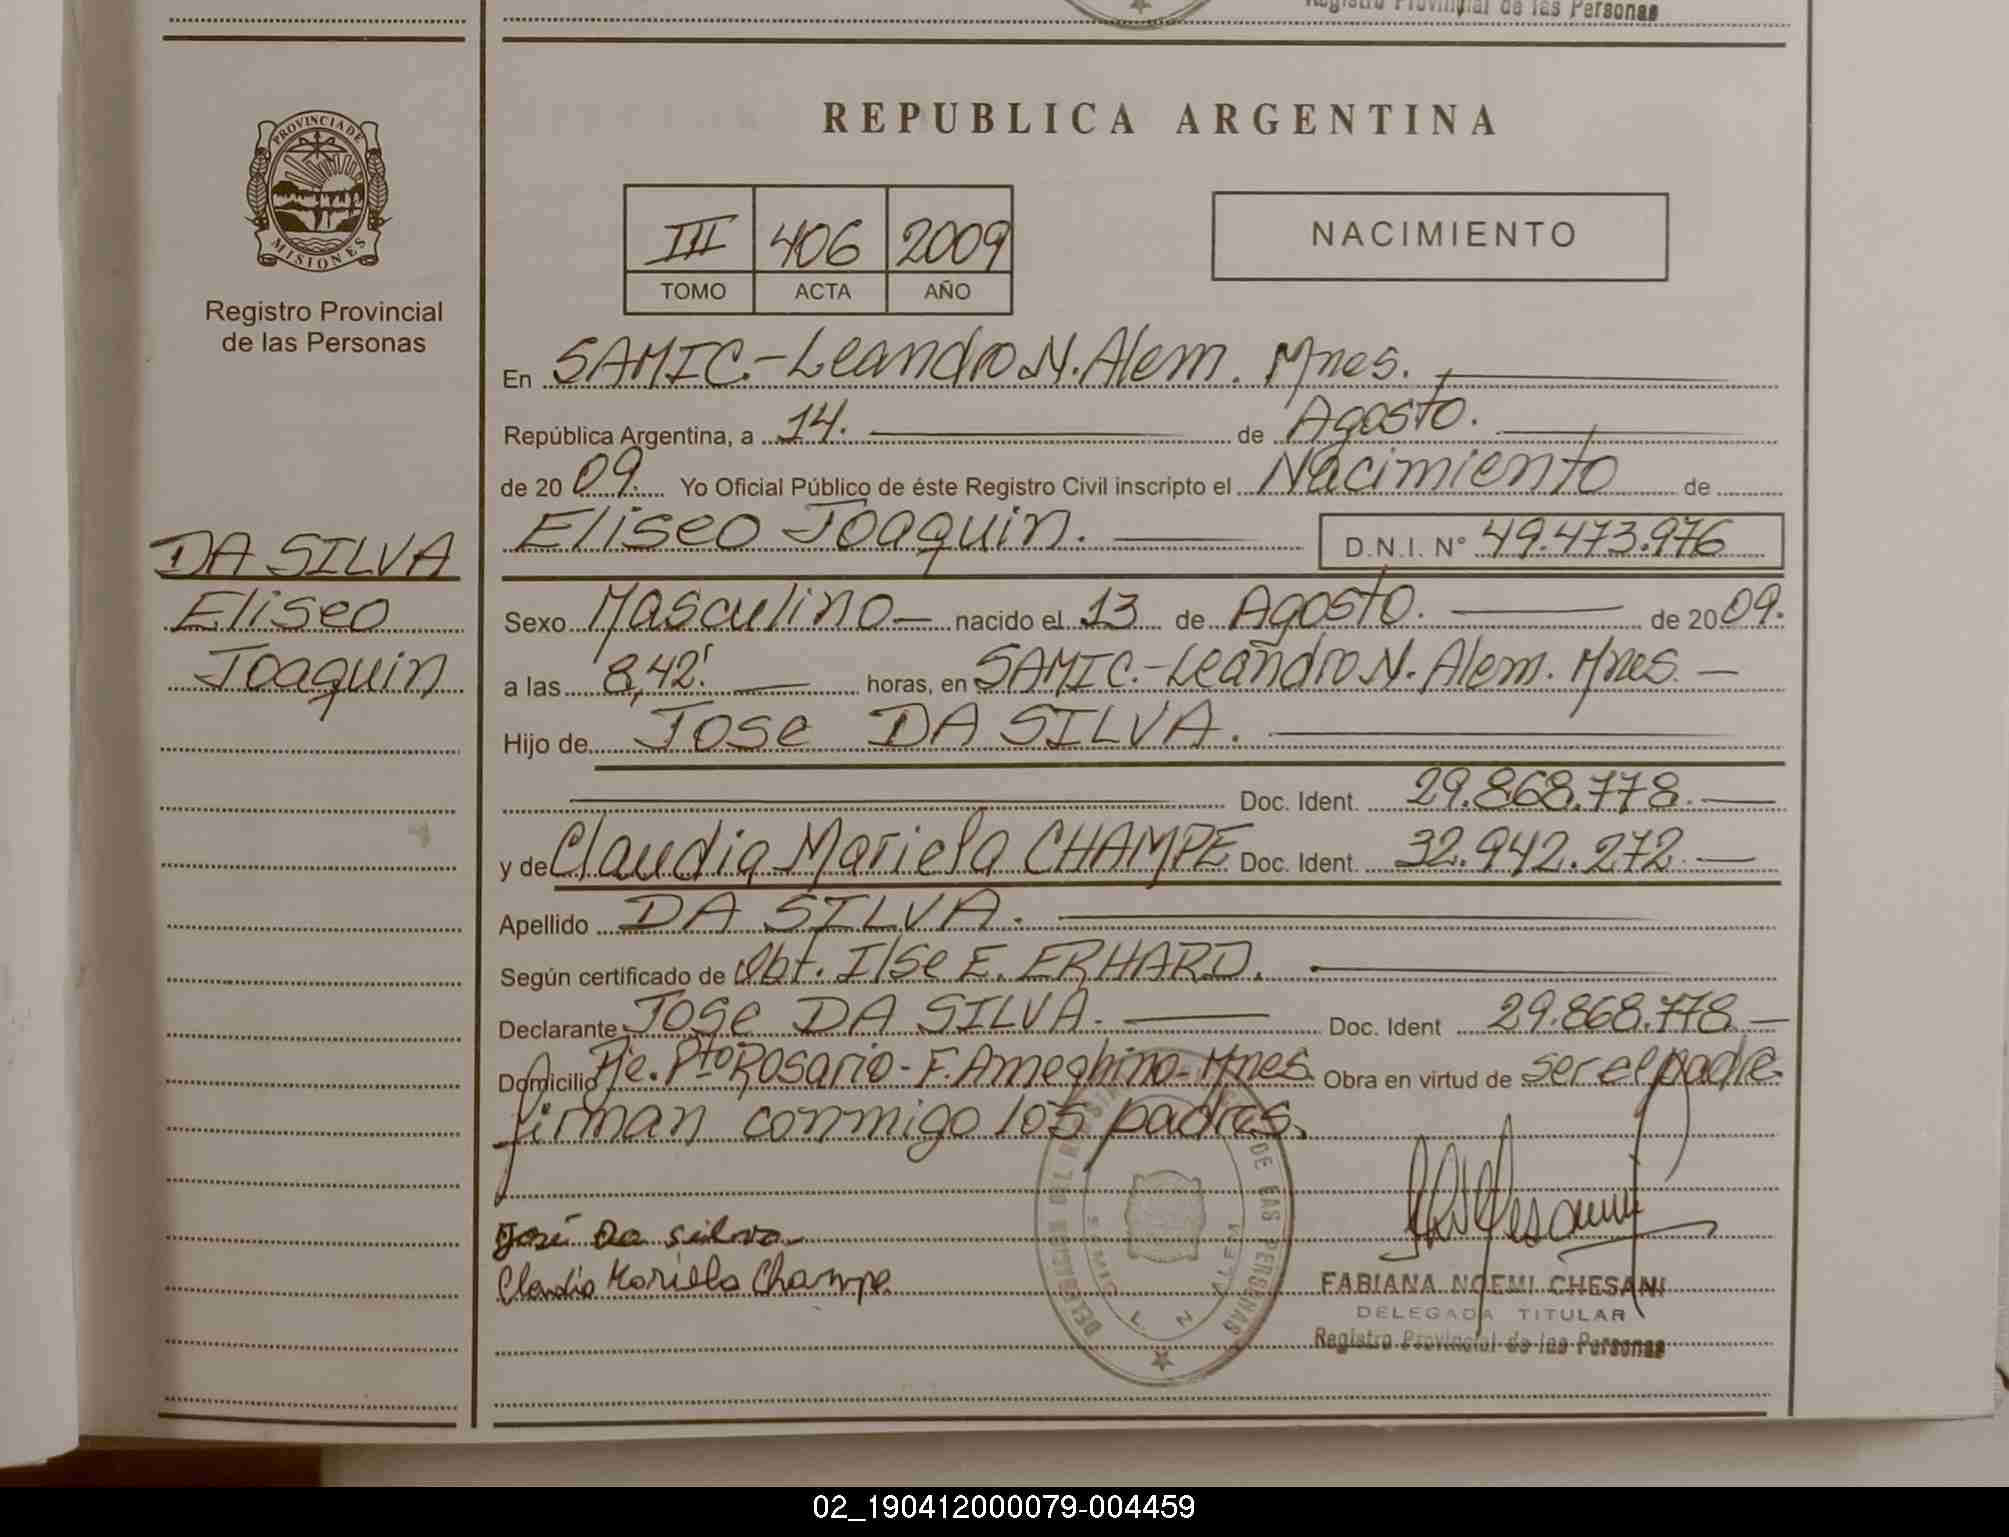 Registro Provincial de las Personas
PROVINCIA DE
MISIONES
Registro Provincial
de las Personas
DA SILVA
Eliseo
Joaquin
REPUBLICA ARGENTINA
III 406 2009
TOMO ACTA AÑO
NACIMIENTO
En SAMIC.-Leandro N. Alem. Mnes.
República Argentina, a 14. de Agosto.
de 20 09. Yo Oficial Público de éste Registro Civil inscripto el Nacimiento de
Eliseo Joaquin. D.N.I. N° 49.473.976
Sexo Masculino nacido el 13 de Agosto. de 20 09.
a las 8,42' horas, en SAMIC.-Leandro N. Alem. Mnes.
Hijo de Jose DA SILVA.
Doc. Ident. 29.868.778.
y de Claudia Mariela CHAMPE Doc. Ident. 32.942.272.
Apellido DA SILVA.
Según certificado de Obt. Ilse E. ERHARD.
Declarante Jose DA SILVA. Doc. Ident 29.868.778
Domicilio Pje. Pto Rosario - F. Ameghino - Mnes. Obra en virtud de ser el padre
firman conmigo los padres.
José Da Silva
Claudia Mariela Champe
DE LAS PERSONAS
SAMIC L. N. ALEM
FABIANA NOEMI CHESANI
DELEGADA TITULAR
Registro Provincial de las Personas
02_190412000079-004459